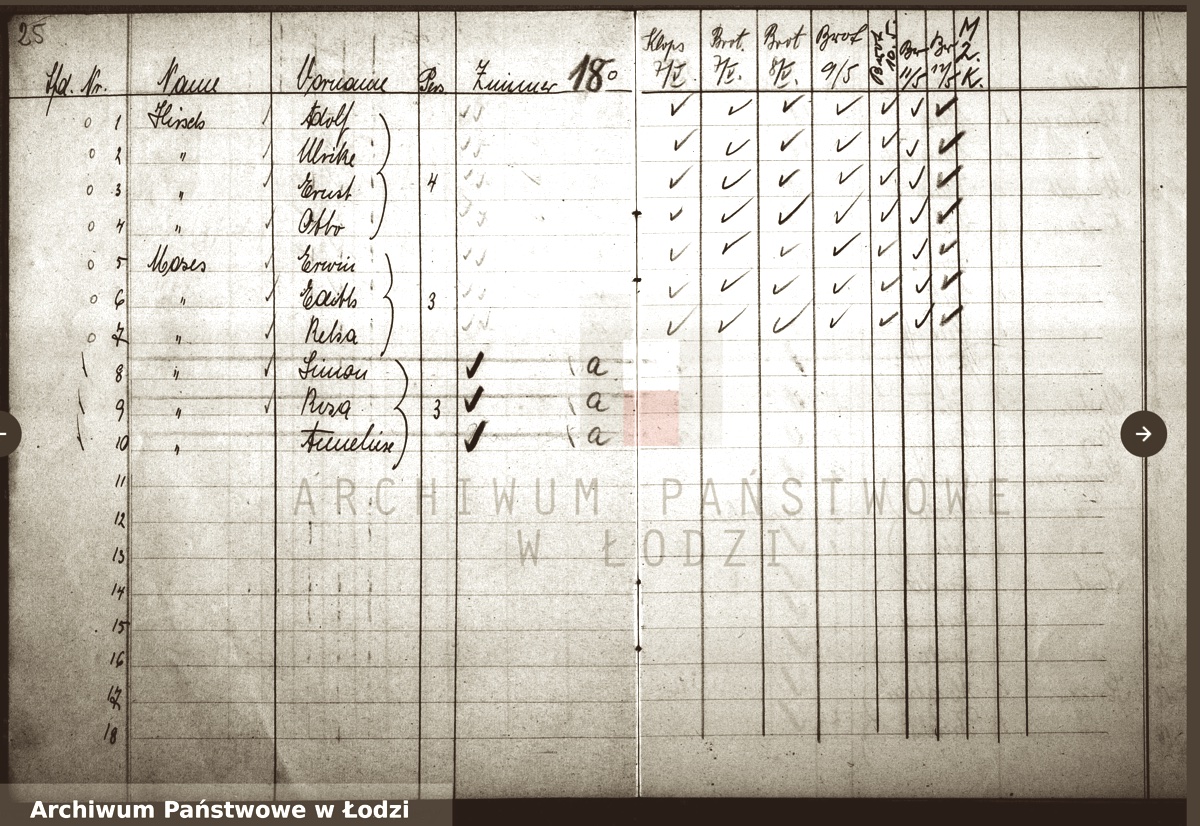 25
Lfd. Nr. Name Vorname Pers Zimmer 18 Klops 7/V. Brot. 7/V. Brot 8/V. Brot 9/5 Brot 10.5 Br 11/5 Br 12/5 M 2. K.
0 1 Hirsch Adolf
0 2 " Ulrike
0 3 " Ernst 4
0 4 " Otto
0 5 Moses Erwin
0 6 " Edith 3
0 7 "
8 " Simon a
9 " Roza 3 a
10 " Anneliese a
11
12
13
14
15
16
17
18
ARCHIWUM PAŃSTWOWE
W ŁODZI
Archiwum Państwowe w Łodzi